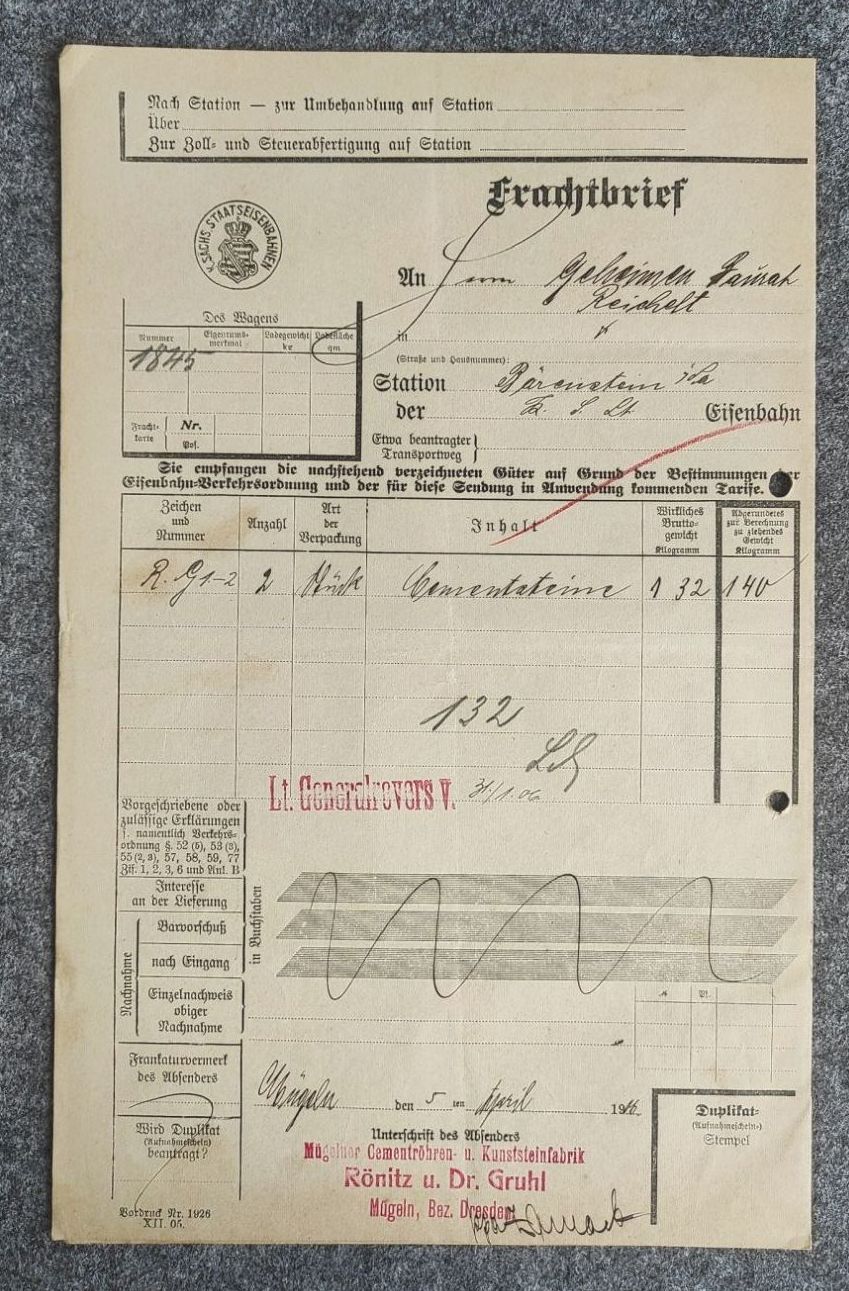 Nach Station — zur Umbehandlung auf Station
Über
Zur Zoll- und Steuerabfertigung auf Station
Frachtbrief
K. SÄCHS. STAATSEISENBAHNEN
An Herrn Geheimen Baurat
Reichelt
in
(Straße und Hausnummer):
Station Bärenstein
der K. S. St. Eisenbahn
Etwa beantragter
Transportweg
Des Wagens
Nummer Eigentums-merkmal Ladegewicht kg Ladefläche qm
1845
Fracht-karte Nr.
Pos.
Sie empfangen die nachstehend verzeichneten Güter auf Grund der Bestimmungen der
Eisenbahn-Verkehrsordnung und der für diese Sendung in Anwendung kommenden Tarife.
Zeichen und Nummer Anzahl Art der Verpackung Inhalt Wirkliches Brutto-gewicht Kilogramm Abgerundetes zur Berechnung zu ziehendes Gewicht Kilogramm
R. G 1-2 2 Stück Cementsteine 132 140
132
Lt. Generalrevers v. 31/1.06
Vorgeschriebene oder
zulässige Erklärungen
f. namentlich Verkehrs-
ordnung §. 52 (5), 53 (3),
55 (2, 3), 57, 58, 59, 77
Zif. 1, 2, 3, 6 und Anl. B
Interesse
an der Lieferung
in Buchstaben
Nachnahme
Barvorschuß
nach Eingang
Einzelnachweis
obiger
Nachnahme
Pf.
Frankaturvermerk
des Absenders
Mügeln den 5 ten April 1916
Wird Duplikat
(Aufnahmeschein)
beantragt?
Unterschrift des Absenders
Mügelner Cementröhren- u. Kunststeinfabrik
Rönitz u. Dr. Gruhl
Mügeln, Bez. Dresden
Duplikat-
(Aufnahmeschein-)
Stempel
Vordruck Nr. 1926
XII. 05.